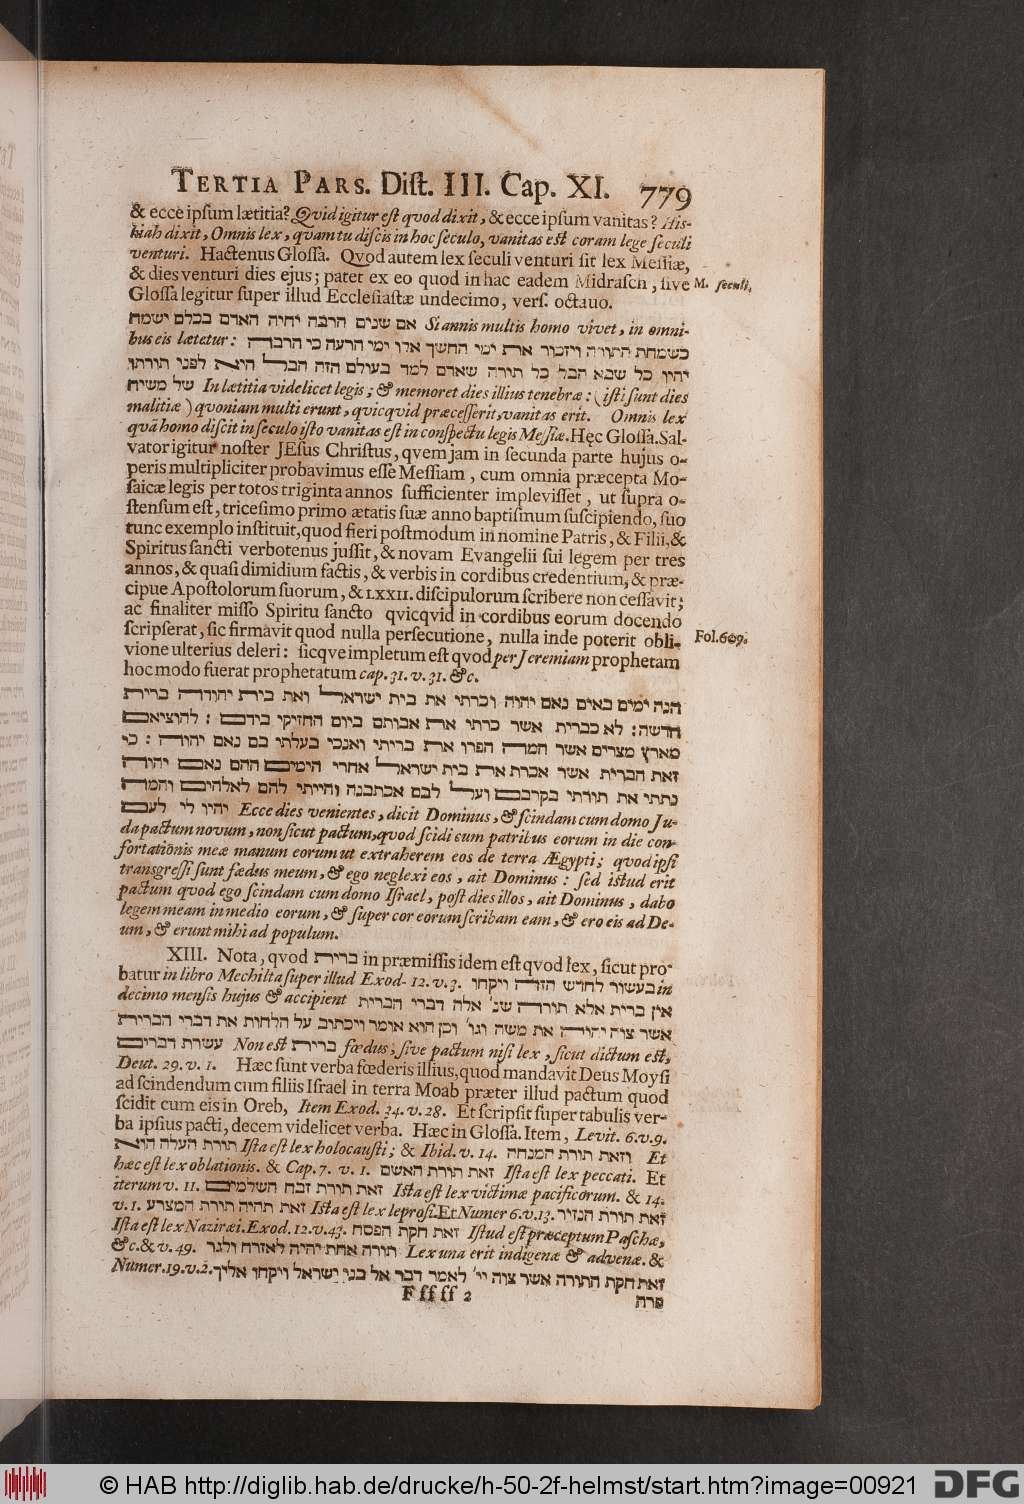 TERTIA PARS. Dist. III. Cap. XI. 779
& ecce ipsum lætitia? Qvid igitur est qvod dixit, & ecce ipsum vanitas? His-
kiah dixit, Omnis lex, qvam tu discis in hoc seculo, vanitas est coram lege seculi
venturi. Hactenus Glossa. Qvod autem lex seculi venturi sit lex Messiæ,
& dies venturi dies ejus; patet ex eo quod in hac eadem Midrasch, sive
M. seculi,
Glossa legitur super illud Ecclesiastæ undecimo, vers. octavo.
אם שנים הרבה יחיה האדם בכלם ישמח Si annis multis homo vivet, in omni-
bus eis lætetur: כשמחת התורה ויזכור את ימי החשך אלו ימי הרעה כי הרבה
יהיו כל שבא הבל כל תורה שאדם למד בעולם הזה הבל היא לפני תורתו
של משיח In lætitia videlicet legis; & memoret dies illius tenebræ: (isti sunt dies
malitiæ) qvoniam multi erunt, qvicqvid præcesserit, vanitas erit. Omnis lex
qvã homo discit in seculo isto vanitas est in conspectu legis Messiæ. Hęc Glossa. Sal-
vator igitur noster JEsus Christus, qvem jam in secunda parte hujus o-
peris multipliciter probavimus esse Messiam, cum omnia præcepta Mo-
saicæ legis per totos triginta annos sufficienter implevisset, ut supra o-
stensum est, tricesimo primo ætatis suæ anno baptismum suscipiendo, suo
tunc exemplo instituit, quod fieri postmodum in nomine Patris, & Filii, &
Spiritus sancti verbotenus jussit, & novam Evangelii sui legem per tres
annos, & quasi dimidium factis, & verbis in cordibus credentium, & præ-
cipue Apostolorum suorum, & LXXII. discipulorum scribere non cessavit;
ac finaliter misso Spiritu sancto qvicqvid in cordibus eorum docendo
scripserat, sic firmavit quod nulla persecutione, nulla inde poterit obli-
Fol. 609.
vione ulterius deleri: sicqve impletum est qvod per Jeremiam prophetam
hoc modo fuerat prophetatum cap. 31. v. 31. &c.
הנה ימים באים נאם יהוה וכרתי את בית ישראל ואת בית יהודה ברית
חדשה: לא כברית אשר כרתי את אבותם ביום החזיקי בידם: להוציאם
מארץ מצרים אשר המה הפרו את בריתי ואנכי בעלתי בם נאם יהוה: כי
זאת הברית אשר אכרת את בית ישראל אחרי הימים ההם נאם יהוה
נתתי את תורתי בקרבם ועל לבם אכתבנה וחייתי להם לאלהים והמה
יהיו לי לעם Ecce dies venientes, dicit Dominus, & scindam cum domo Ju-
da pactum novum, non sicut pactum, qvod scidi cum patribus eorum in die con-
fortationis meæ manum eorum ut extraherem eos de terra Ægypti; qvod ipsi
transgressi sunt fœdus meum, & ego neglexi eos, ait Dominus: sed istud erit
pactum qvod ego scindam cum domo Israel, post dies illos, ait Dominus, dabo
legem meam in medio eorum, & super cor eorum scribam eam, & ero eis ad De-
um, & erunt mihi ad populum.
XIII. Nota, qvod ברית in præmissis idem est qvod lex, sicut pro-
batur in libro Mechilta super illud Exod. 12. v. 3. בעשור לחדש הזה ויקחו in
decimo mensis hujus & accipient אין ברית אלא תורה שנ' אלה דברי הברית
אשר צוה יהוה את משה וגו' וכן הוא אומר ויכתוב על הלחות את דברי הברית
עשרת דברים Non est ברית fœdus, sive pactum nisi lex, sicut dictum est,
Deut. 29. v. 1. Hæc sunt verba fœderis illius, quod mandavit Deus Moysi
ad scindendum cum filiis Israel in terra Moab præter illud pactum quod
scidit cum eis in Oreb, Item Exod. 34. v. 28. Et scripsit super tabulis ver-
ba ipsius pacti, decem videlicet verba. Hæc in Glossa. Item, Levit. 6. v. 9.
תורת העלה הוא Ista est lex holocausti; & Ibid. v. 14. וזאת תורת המנחה Et
hæc est lex oblationis. & Cap. 7. v. 1. זאת תורת האשם Ista est lex peccati. Et
iterum v. 11. זאת תורת זבח השלמים Ista est lex victimæ pacificorum. & 14.
v. 1. זאת תהיה תורת המצרע Ista est lex leprosi. Et Numer 6. v. 13. זאת תורת הנזיר
Ista est lex Naziræi. Exod. 12. v. 43. זאת חקת הפסח Istud est præceptum Paschæ,
&c. & v. 49. תורה אחת יהיה לאזרח ולגר Lex una erit indigenæ & advenæ. &
Numer. 19. v. 2. זאת חקת התורה אשר צוה יי' לאמר דבר אל בני ישראל ויקחו אליך
F ff ff 2 פרה
© HAB http://diglib.hab.de/drucke/h-50-2f-helmst/start.htm?image=00921 DFG